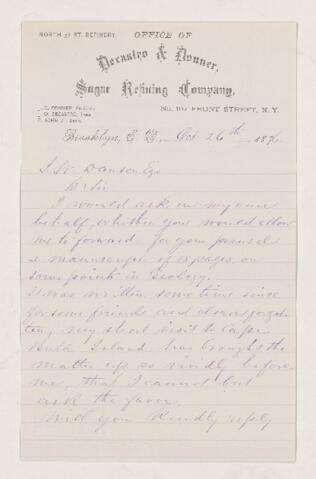 NORTH 3d ST. REFINERY.
OFFICE OF
Decastro & Donner,
Sugar Refining Company,
NO. 110 FRONT STREET, N.Y.
Brooklyn, E. D., Oct 26th 1876
J. W. Dawson Esq
D. Sir
I would ask in my own
behalf, whether you would allow
me to forward for your perusal
a manuscript of 18 pages, on
some points in Geology.
It was written some time since
for some friends and almost forgot-
ten, my short visit to Cape
Breton Island has brought the
matter up so vividly before
me, that I cannot but
ask the favor.
Will you kindly reply